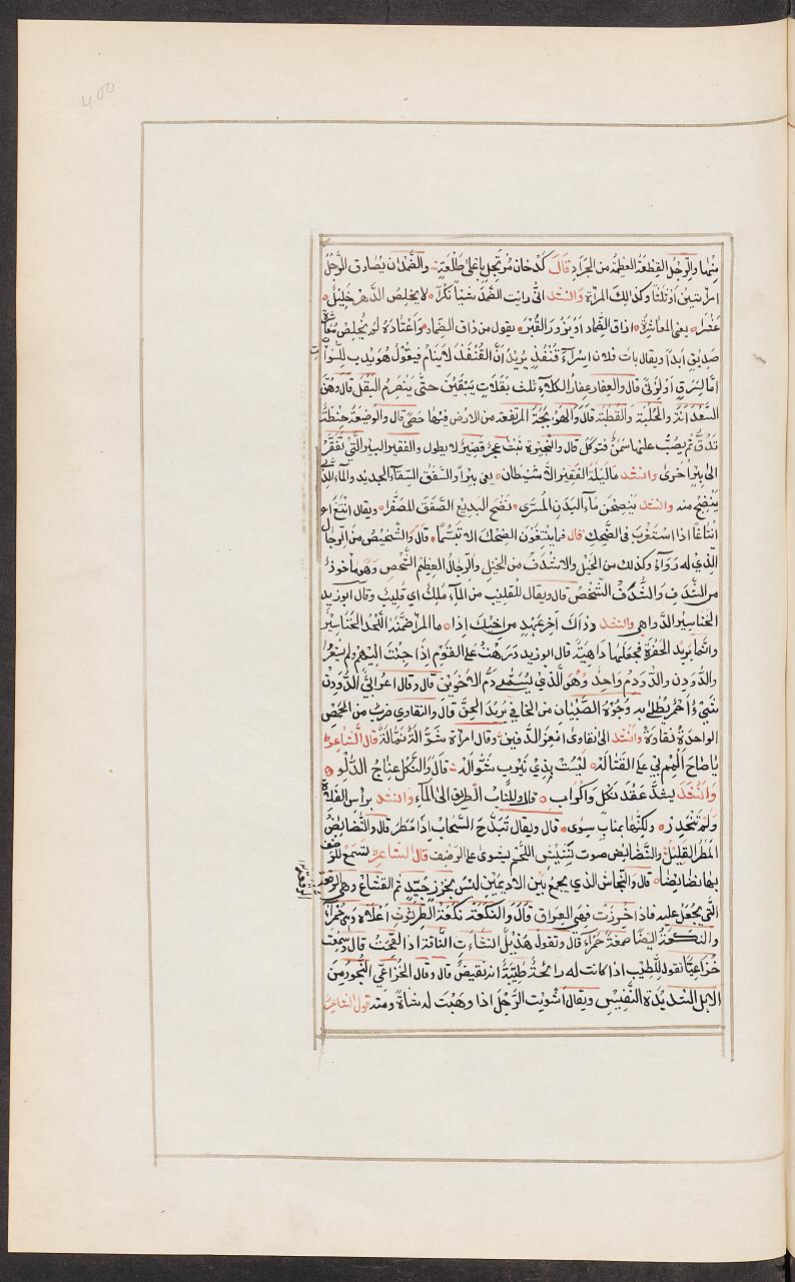 400
منها والرِجل القطعة العظيمة من الجراد قال كدخان مرتجل باعلى طلعة والضمدان يصادق الرجل
امراتين او ثلثا وكذلك المراة وانشد انى رايت الضمد شيا نكرا لا يخلص الدهر خليل
عشرا يعنى المعاشرة اذاق الضماد او يزور القبر يقول من ذاق الضماد واعتاده لم يخلص
صديق ابدا ويقال بات فلان اسراء قنفذ يريد ان القنفذ لا ينام فيقول هو يدب
اما لسرق او لزنى قال والعفار عفار الكلاء ثلث بقلات يبقين حتى ينصرم البقل قال وهى
السعدانة والحلبة والقطبة قال والهو بجة المرتفعة من الارض فيها حصى قال والوضيعة حنطة
تدق ثم يصب عليها سمن فتوكل قال والنجيرة نبت عجر قصير لا يطول والفقير البير التى تفقر
الى بير اخرى وانشد ماليلة الفقير الا شيطان يعنى بيرا والشفق السقاء الجديد والماء
ينضح منه وانشد ينضحن ماء البدن المسرى نضح البديع الصفق المصفرا ويقال انتغ
انتاغا اذا استغرب فى الضحك قال فما ينتغون الضحك الا تبسما قال والشخيص من الرجال
الذى له رواء وكذلك من الخيل والاشدف من الخيل والرجال العظيم الشخص وهو ماخوذ
من الشدف والشدف الشخص قال ويقال للقليب من الماء ملك اى قليب وقال ابو زيد
الخناسير الدواهى وانشد وذاك اخر عهد من اخيك اذا ما المرا ضمنه اللحد الخناسير
وانما يريد الحفرة فجعلها داهية قال ابو زيد درهت على القوم اذا جئت اليهم ولم يشعروا
والدودن والدودم واحد وهو الذى يسمى دم الاخوين قال وقال اعرابى الدودن
شى احمر يطلى به وجوه الصبيان من الخافى يريد الجن قال والنقاوى ضرب من الحمض
الواحدة نقاوة وانشد الى نقاوى امعز الدفين وقال امراة شوالة نمالة قال الشاعر
ياصاح المم بى على القتاله ليست بذى نيرب شواله قال والنكل عناج الدلو
وانشد يشد عقد نكل واكواب قال والمناب الطريق الى الماء وانشد براس الفلاة
ولم تنحدر ولكنها بمناب سوى قال ويقال تبذح السحاب اذا مطر قال والنضايض
المطر القليل والنضايض صوت كنشيش اللحم يشوى على الرضف قال الشاعر تسمع للرضف
بها نضايضا قال والنجاش الذى يجمع بين الاديمين ليس بخرز جيد ثم القشاع وهى
التى يجعل عليه فاذا خرزت فهى العراق قال والنكعة نكعة الطرثوث اعلاه وهى حمراء
والنكعة ايضا صمغة حمراء قال وتقول هذيل انشاءت الناقة اذا لقحت قال وسمعت
خزاعيا يقول للطيب اذا كانت له رايحة طيبة انه نقيض قال وقال الخزاعى النجور من
الابل الشديدة النفس ويقال اشويت الرجل اذا وهبت له شاة ومنه قول الشاعر